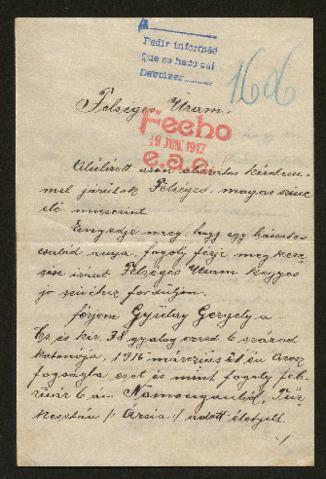 Pedir informes
Que se haga saber
166
Felséges Uram!
Fecho
19 JUN. 1917
e.a.e.
Alulirott azon alázatos kérelem-
mel járulok Felséged, magas szine
elé miszerint
Engedje meg, hogy egy bánatos
család anya, fogoly férje megkere-
sése iránt Felséges Uram kegyes
jó szivéhez forduljon.
férjem Gyulay Gergely a
Cs és kir. 38 gyalog ezred 6 század
katonája, 1916 márczius 21 én orosz
fogságba eset és mint fogoly feb-
ruár 6 án Namanganból, Tur-
kesztán /: Ázsia :/ adott életjelt.
./.